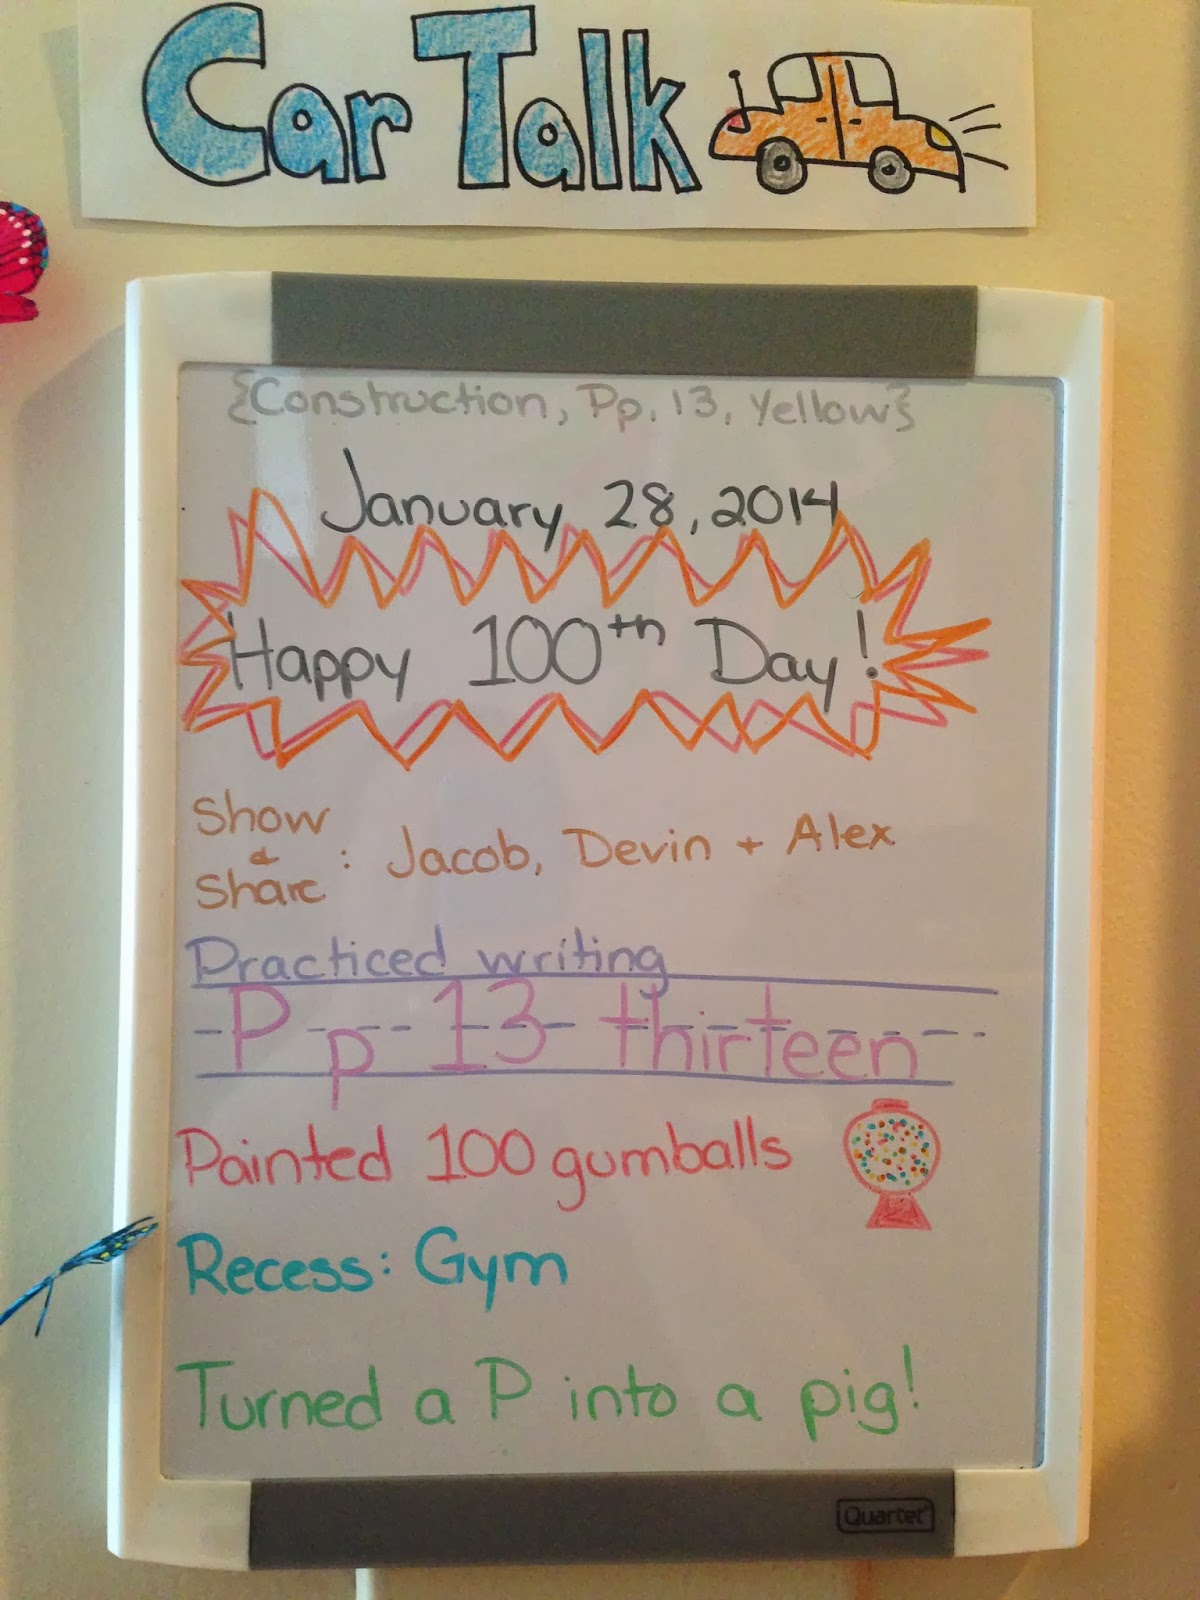 Car Talk
{Construction, Pp, 13, Yellow}
January 28, 2014
Happy 100th Day!
Show
& : Jacob, Devin + Alex
Share
Practiced writing
P p 13 thirteen
Painted 100 gumballs
Recess: Gym
Turned a P into a pig!
Quartet